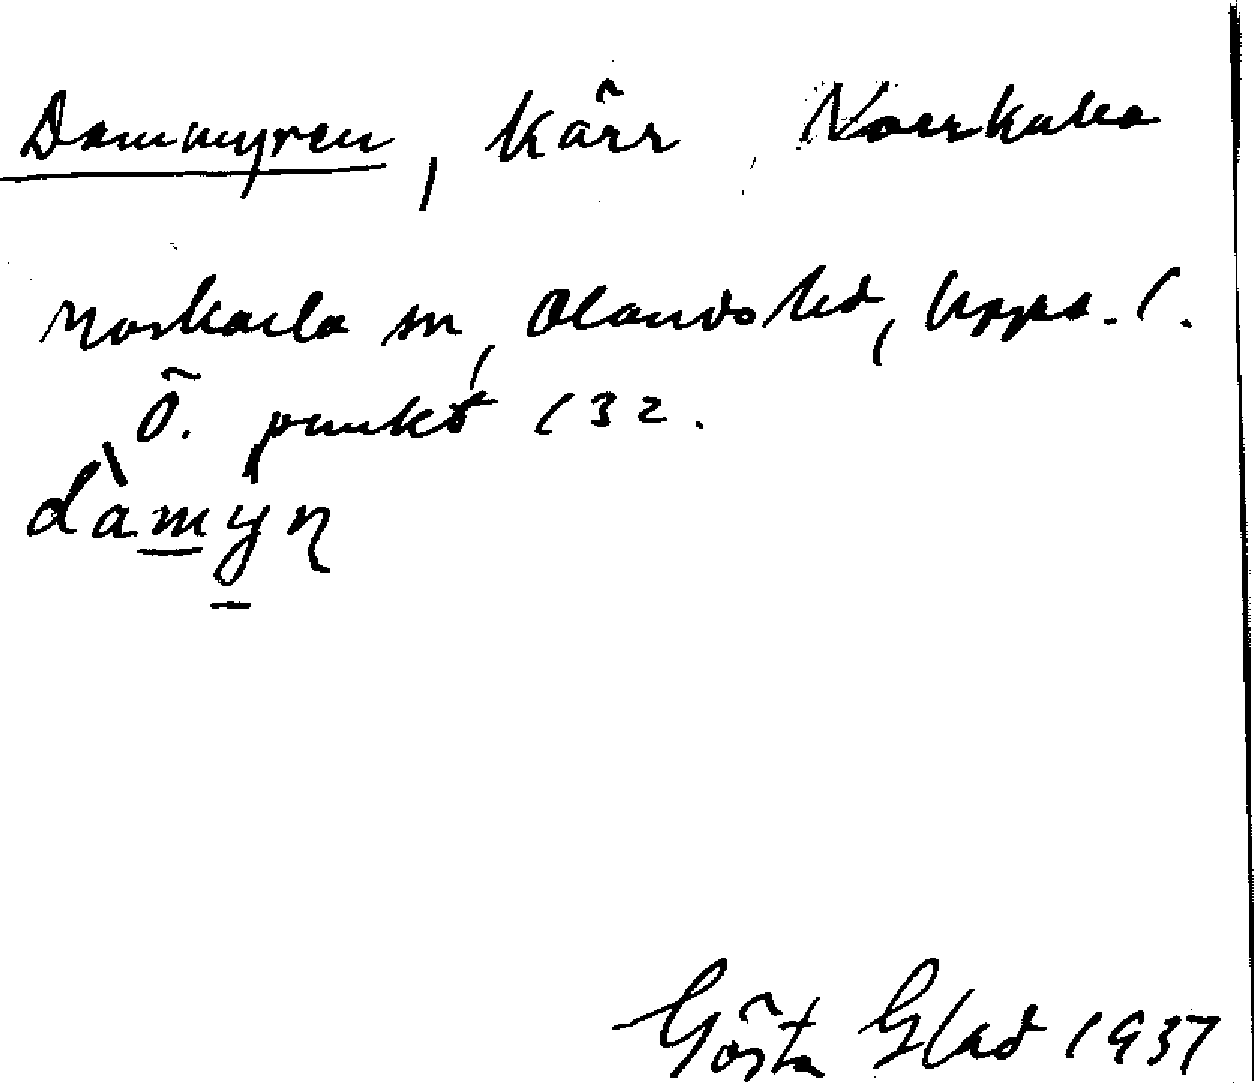 Dammyren, kärr Norrkarla
Morkarla sn, Olands hd, Upps. l.
Ö. punkt 132.
dàmyn
Gösta Glad 1937